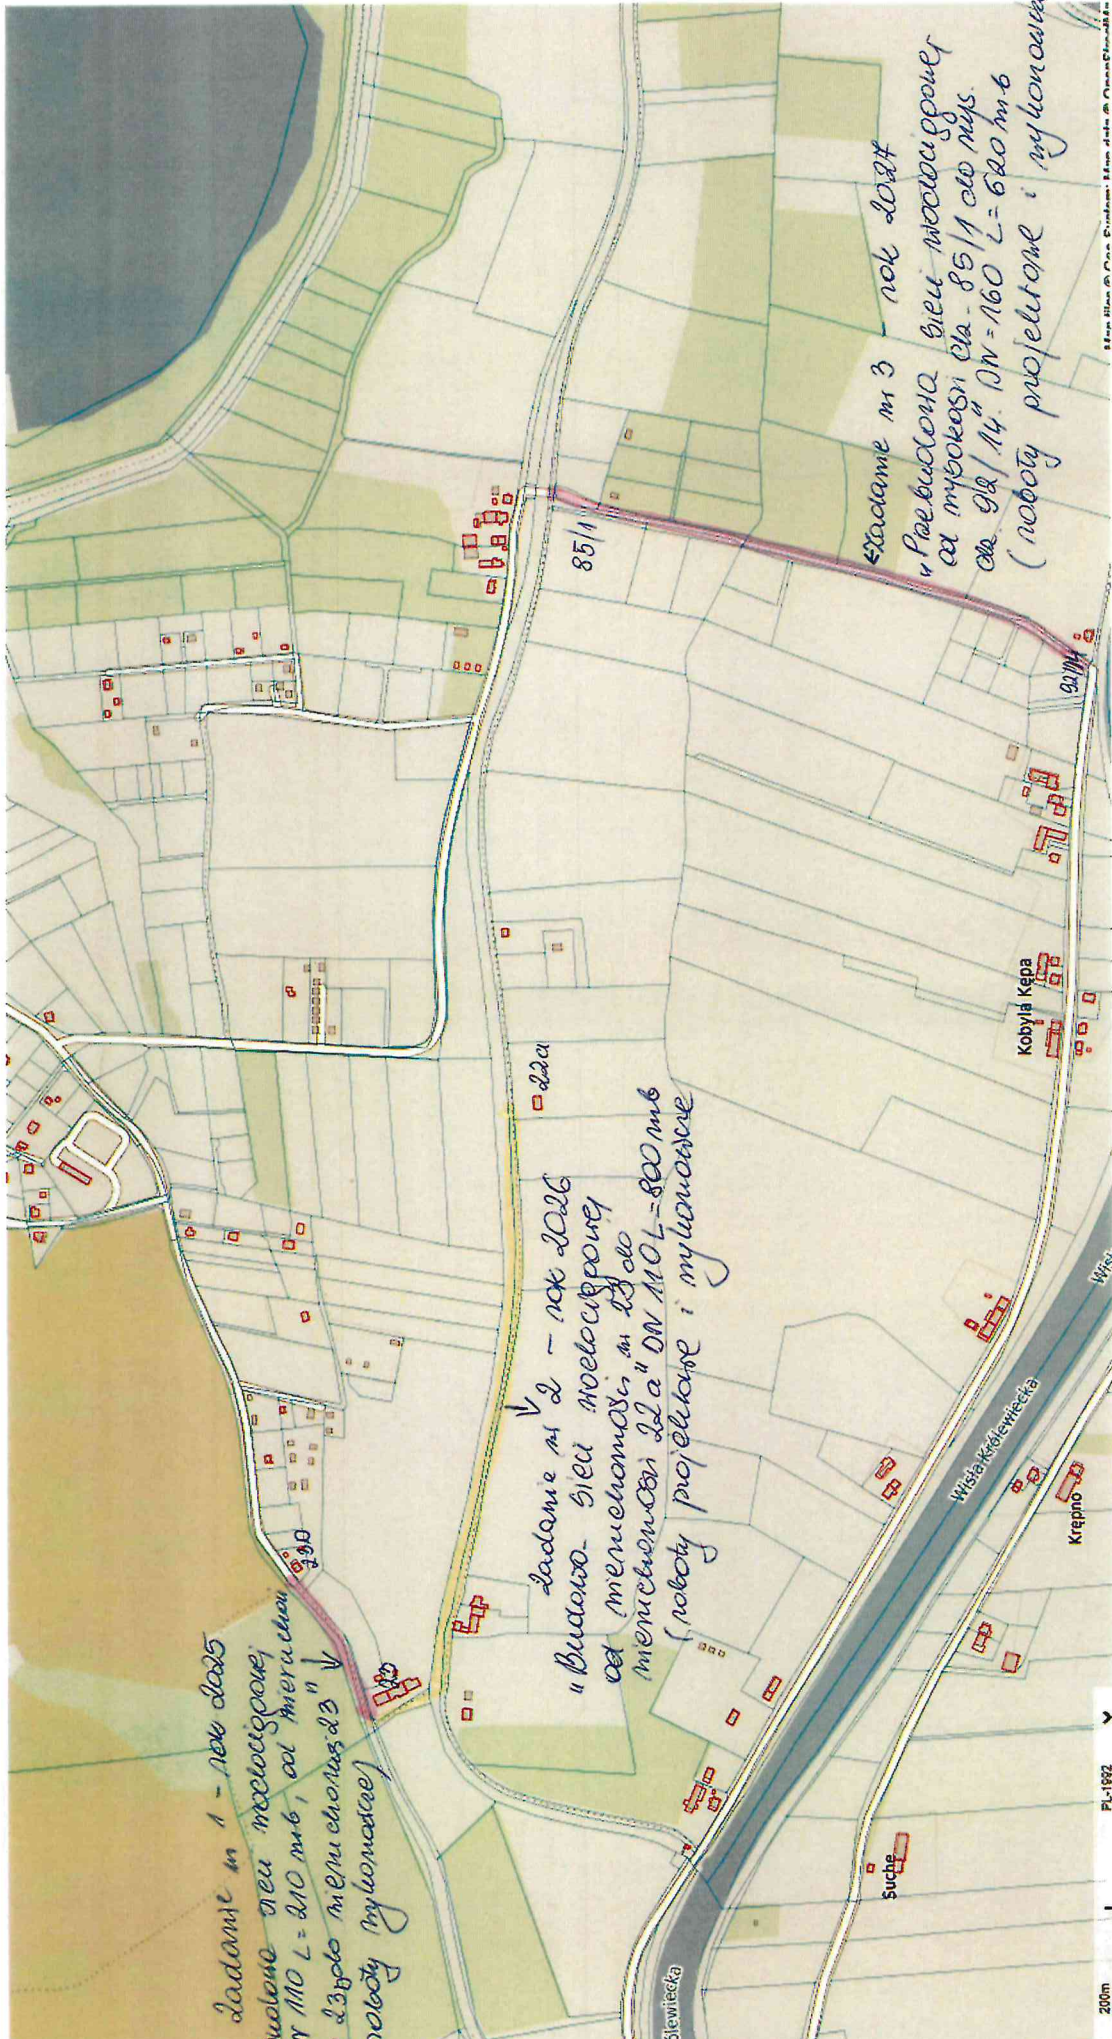 Zadanie nr 1 - rok 2025
sieci wodociągowej
110 L = 210 mb, od nieruchom
do nieruchom 23"
roboty wykonawcze)
23
Zadanie nr 2 - rok 2026
"Budowa sieci wodociągowej
od nieruchomości nr 23 do
nieruchomości 22a" DN 110 L = 800 mb
(roboty projektowe i wykonawcze
22a
85/1
Zadanie nr 3 - rok 2027
"Przebudowa sieci wodociągowej
od wysokości dz. 85/1 do wys.
dz. 92/14" DN = 160 L = 620 mb
(roboty projektowe i wykonawcz
92/14
Kobyla Kępa
Wisła Królewiecka
Krępno
Suche
lewiecka
Wisł
200m
PL-1992